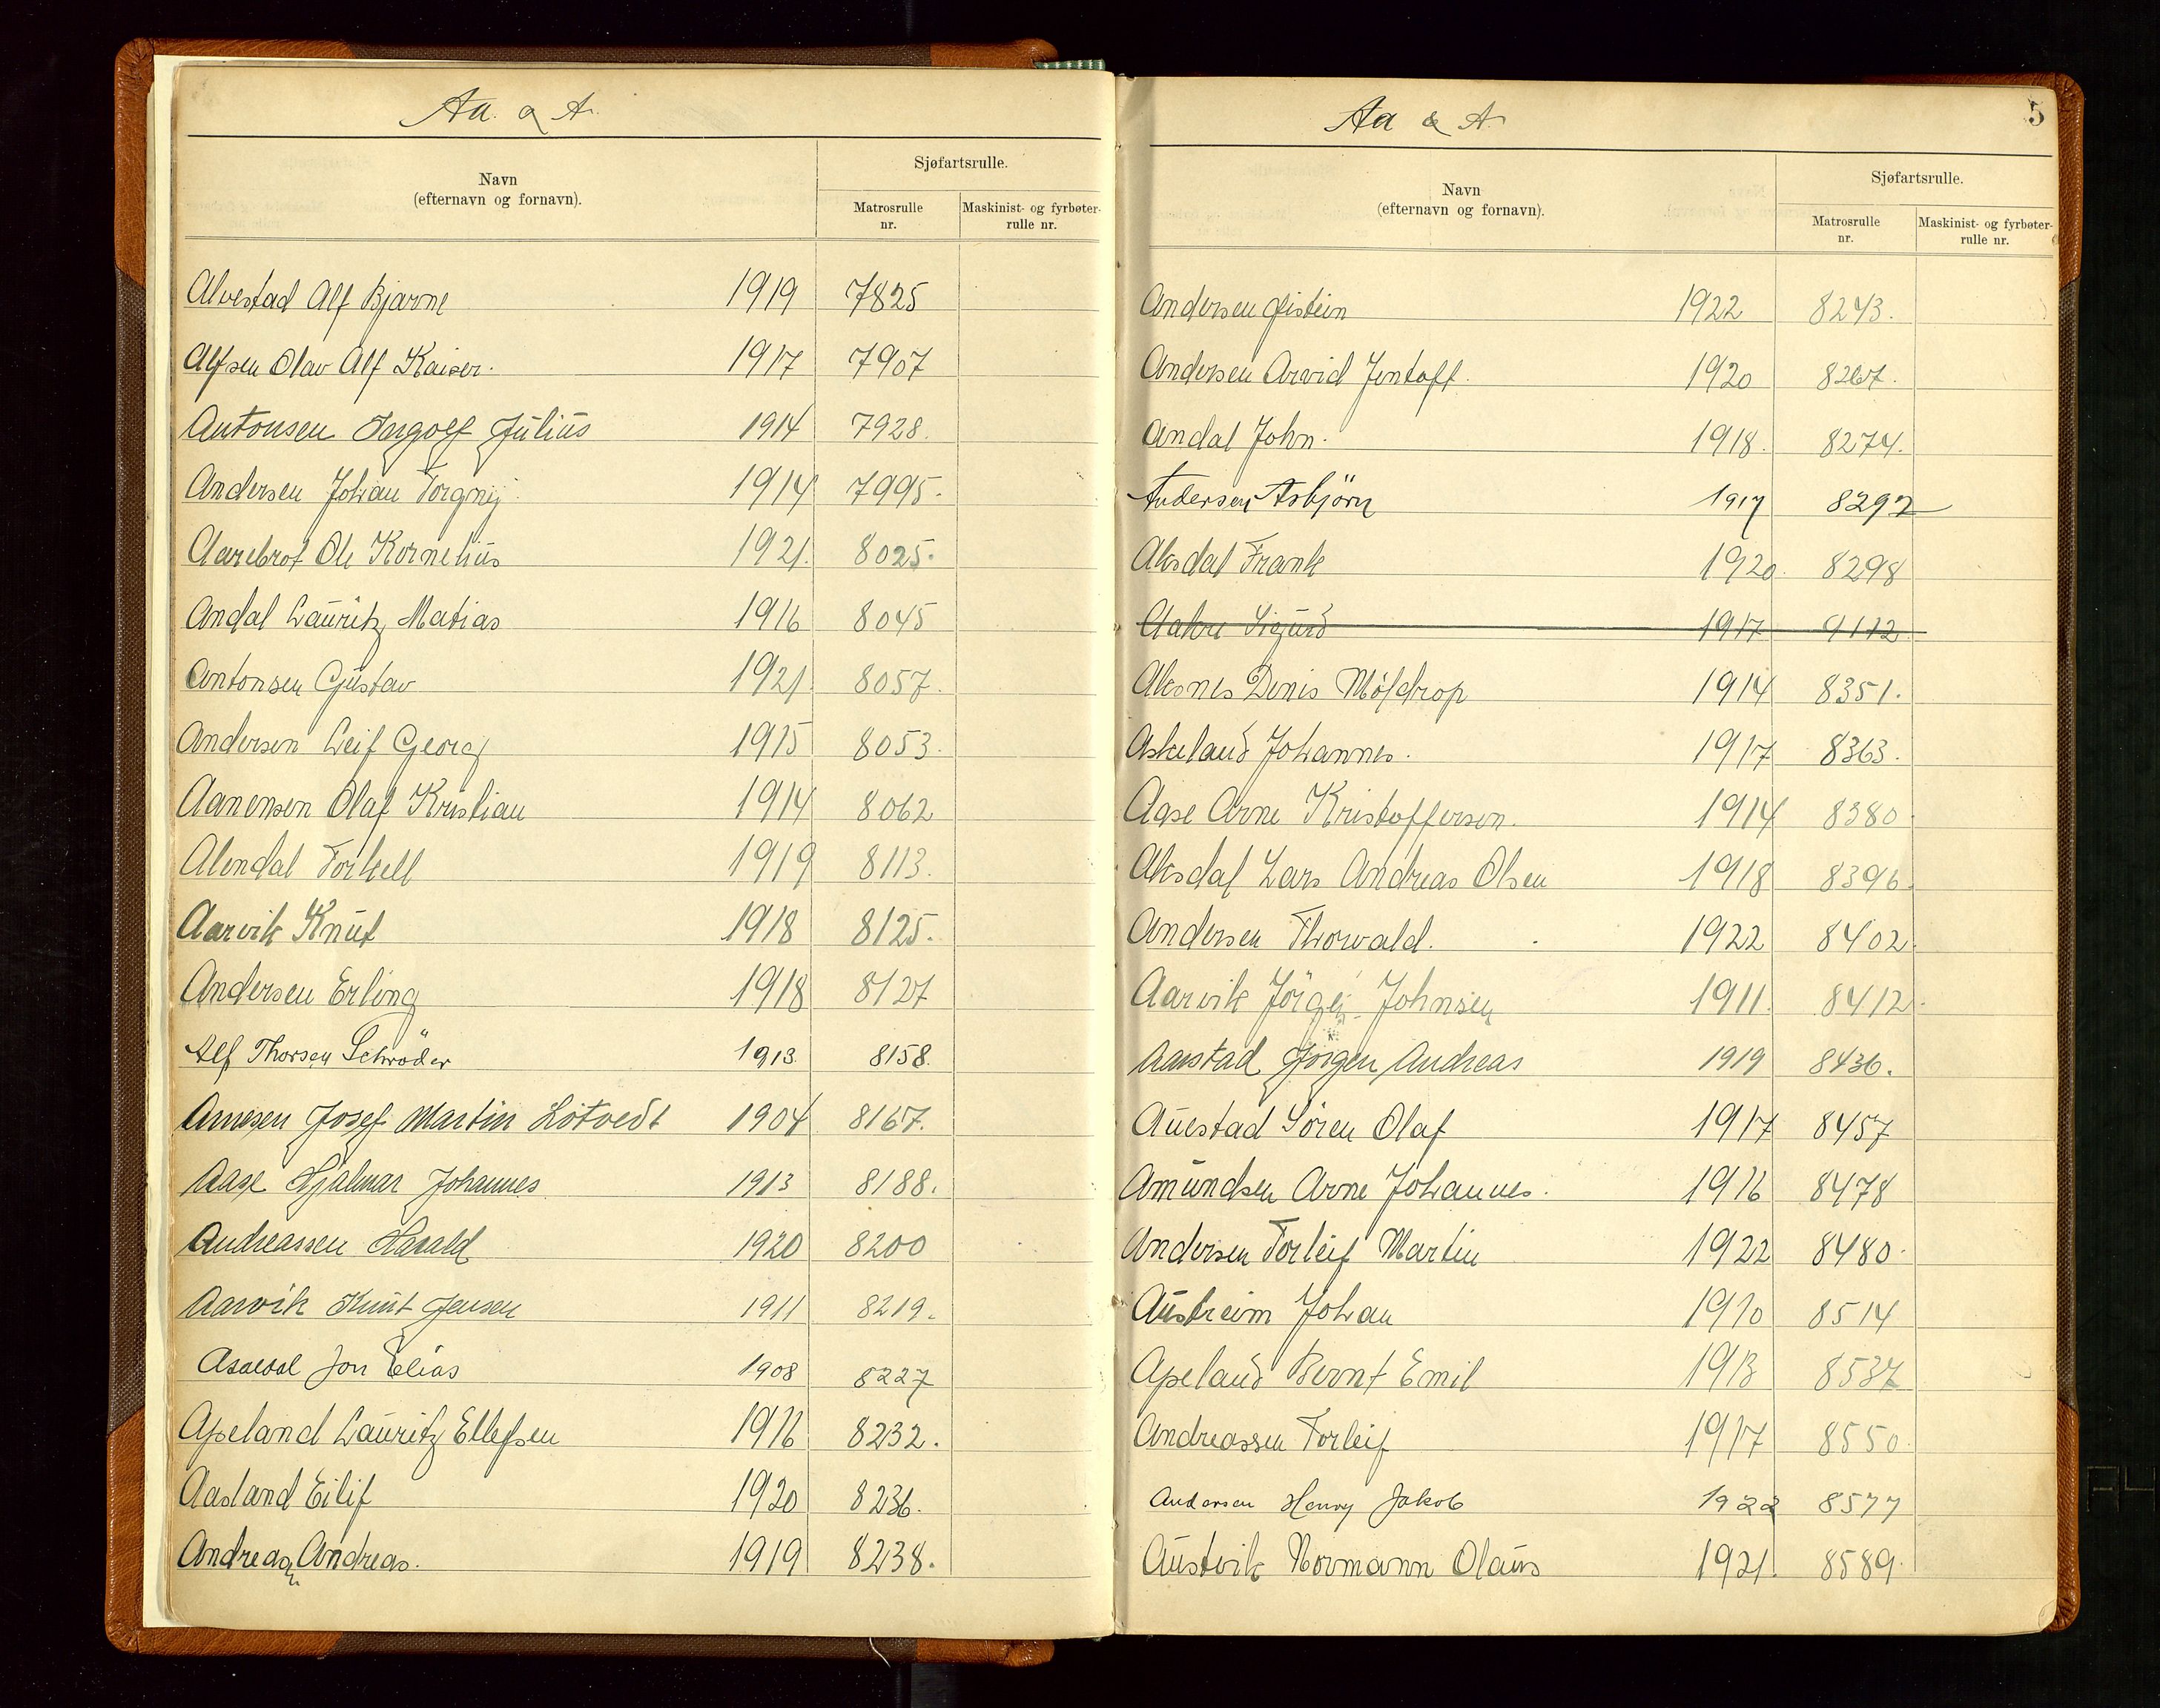 Aa. & A.
Navn
(efternavn og fornavn).
Sjøfartsrulle.
Matrosrulle nr.
Maskinist- og fyrbøter-rulle nr.
Alvestad Alf Bjarne 1919 7825
Alfsen Olav Alf Kaiser. 1917 7907
Antonsen Ingolf Julius 1914 7928.
Andersen Johan Torgny 1914 7995.
Aarebrot Ole Kornelius 1921. 8025.
Andal Lauritz Matias 1916 8045
Antonsen Gustav 1921. 8057.
Andersen Leif Georg 1915 8053.
Aanensen Olaf Kristian 1914 8062
Alendal Torkell 1919 8113.
Aarvik Knut 1918 8125.
Andersen Erling 1918 8127
Alf Thorsen Schröder 1913 8158.
Arnesen Josef Martin Lötvedt 1904 8167.
Aase Hjalmar Johannes 1913 8188.
Andreassen Harald 1920 8200
Aarvik Knut Jensen 1911 8219.
Jon Elias 1908 8227
Apeland Lauritz Ellefsen 1916 8232.
Aasland Eilif 1920 8236.
Andreasen Andreas. 1919 8238.
Aa & A.
5
Navn
(efternavn og fornavn).
Sjøfartsrulle.
Matrosrulle nr.
Maskinist- og fyrbøter-rulle nr.
Andersen Øistein 1922 8243.
Andersen Arvid Jentoft. 1920 8267.
Andal John. 1918. 8274.
Andersen Asbjörn 1917 8292
Aksdal Frank 1920. 8298
Aakre Sigurd 1917 9112
Aksnes Denis Möldrop 1914 8351.
Askeland Johannes. 1917 8363.
Aase Arne Kristoffersen. 1914 8380
Aksdal Lars Andreas Olsen 1918 8396.
Andersen Thorvald. 1922 8402.
Aarvik Jörgen Johnsen 1911. 8412.
Aarstad Jörgen Andreas 1919 8436.
Auestad Sören Olaf 1917 8457
Amundsen Arne Johannes. 1916 8478
Andersen Torleif Martin 1922 8480.
Austreim Johan 1910 8514
Apeland Bernt Emil 1913 8537
Andreassen Torleif 1917 8550.
Andersen Henry Jakob 1922 8577
Austvik Normann Olaus 1921. 8589.